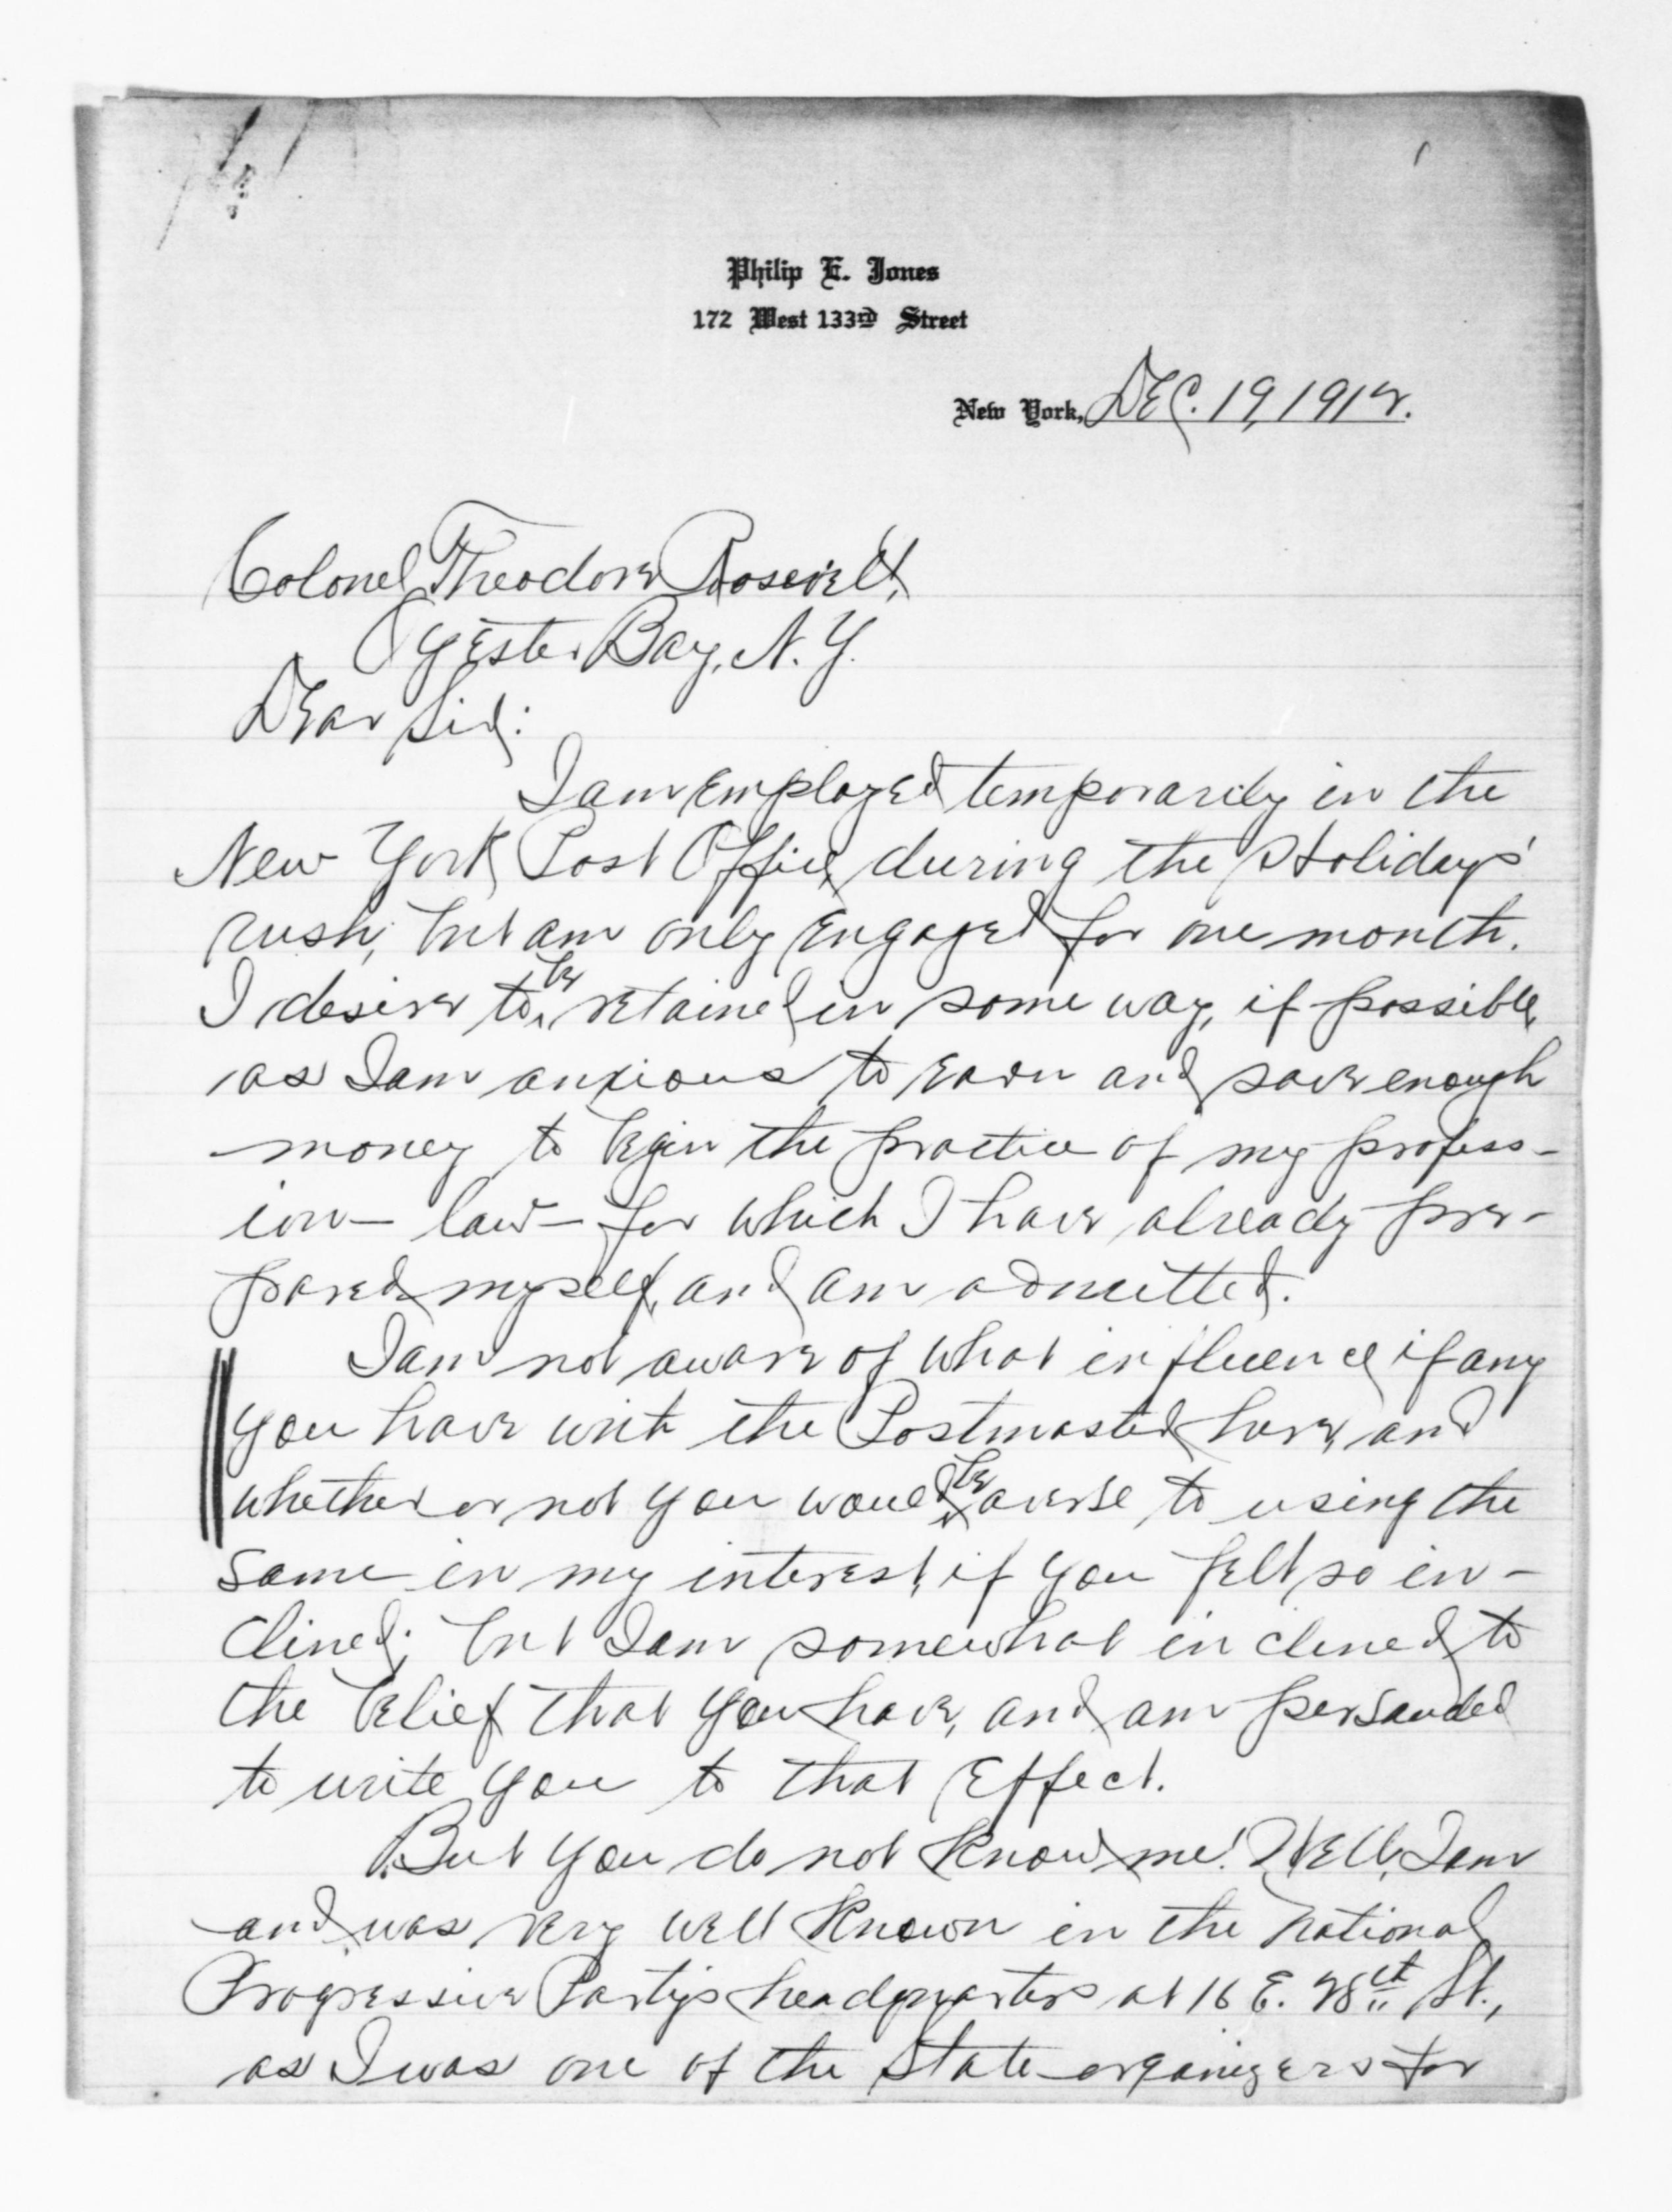 Philip E. Jones
172 West 133rd Street
New York, Dec. 19, 1912.
Colonel Theodore Roosevelt,
Oyester Bay, N.Y.
Dear Sir:
I am employed temporarily in the
New York Post Office during the Holidays'
rush, but am only engaged for one month.
I desire to be retained in some way, if possible,
as I am anxious to earn and save enough
money to begin the practice of my profess-
ion - law - for which I have already pre-
pared myself, and am admitted.
I am not aware of what influence if any
you have with the Postmaster here, and
whether or not you would be averse to using the
same in my interest, if you felt so in-
clined; but I am somewhat inclined to
the belief that you have, and am persauded
to write you to that effect.
But you do not know me! Well, I am
and was very well known in the National
Progressive Party's headquarters at 16 E. 28th St.,
as I was one of the State organizers for